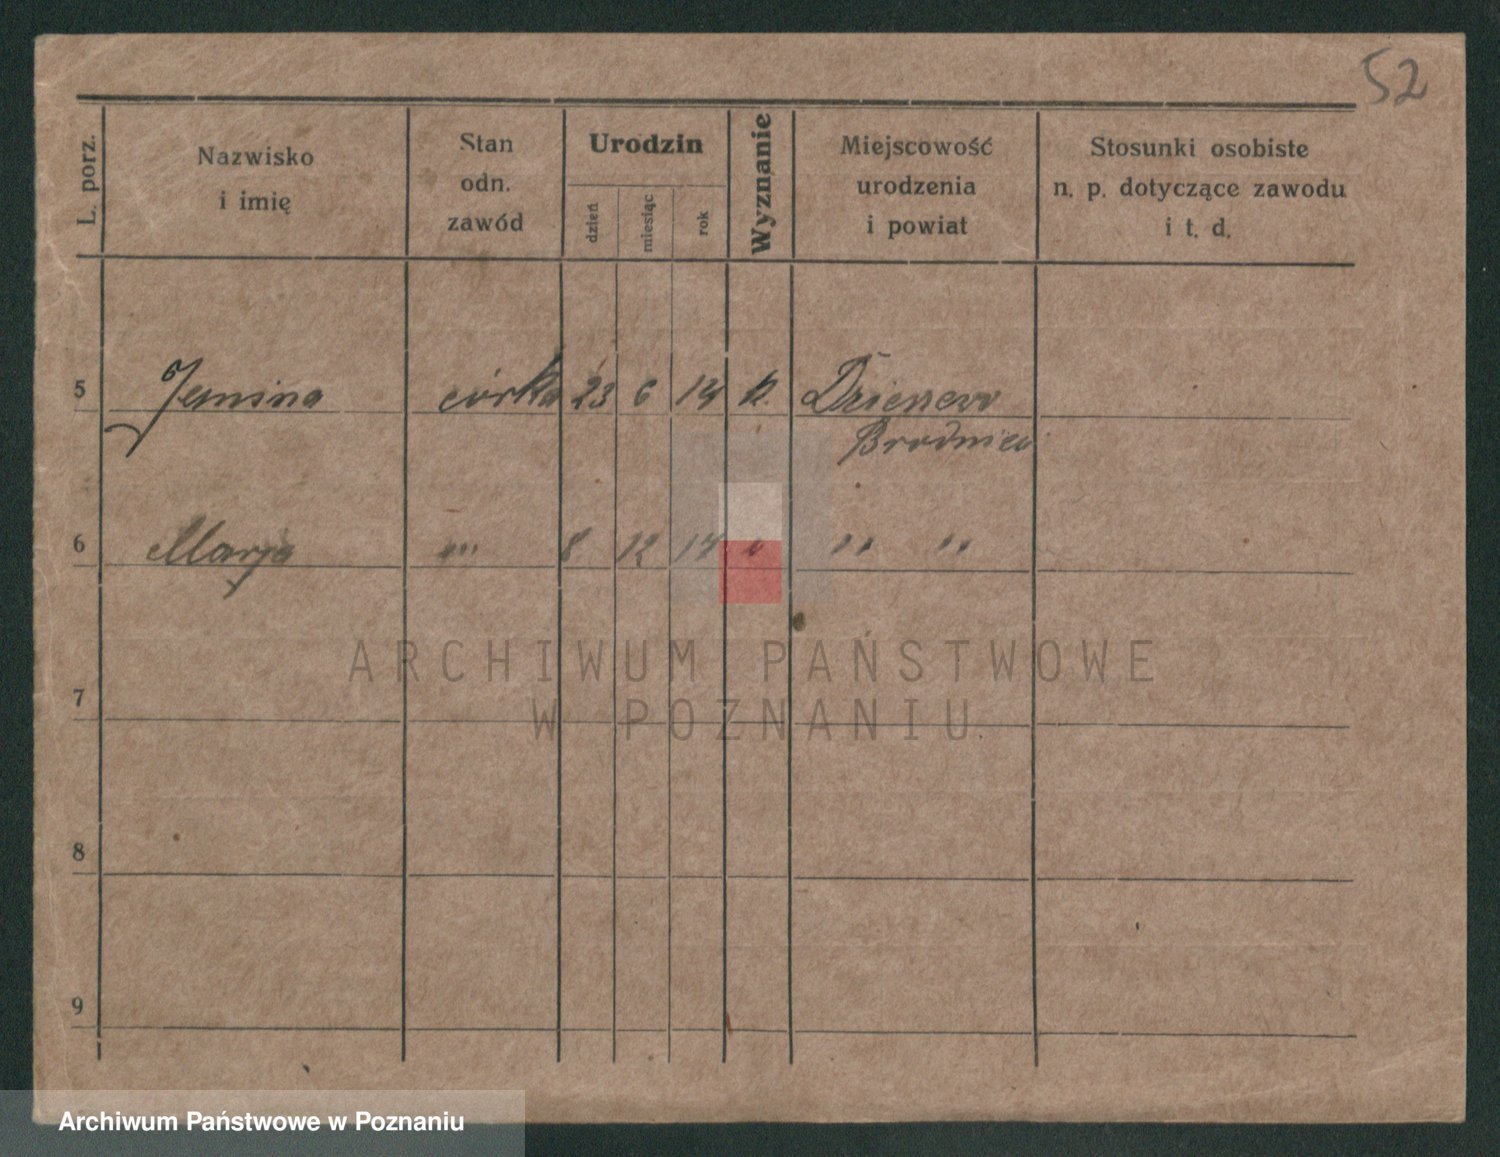 52
L. porz.
Nazwisko
i imię
Stan
odn.
zawód
Urodzin
dzień
miesiąc
rok
Wyznanie
Miejscowość
urodzenia
i powiat
Stosunki osobiste
n. p. dotyczące zawodu
i t. d.
5 córka 23 6 k.
Brodnica
6 Marja " 8 12 " "
ARCHIWUM PAŃSTWOWE
W POZNANIU
7
8
9
Archiwum Państwowe w Poznaniu